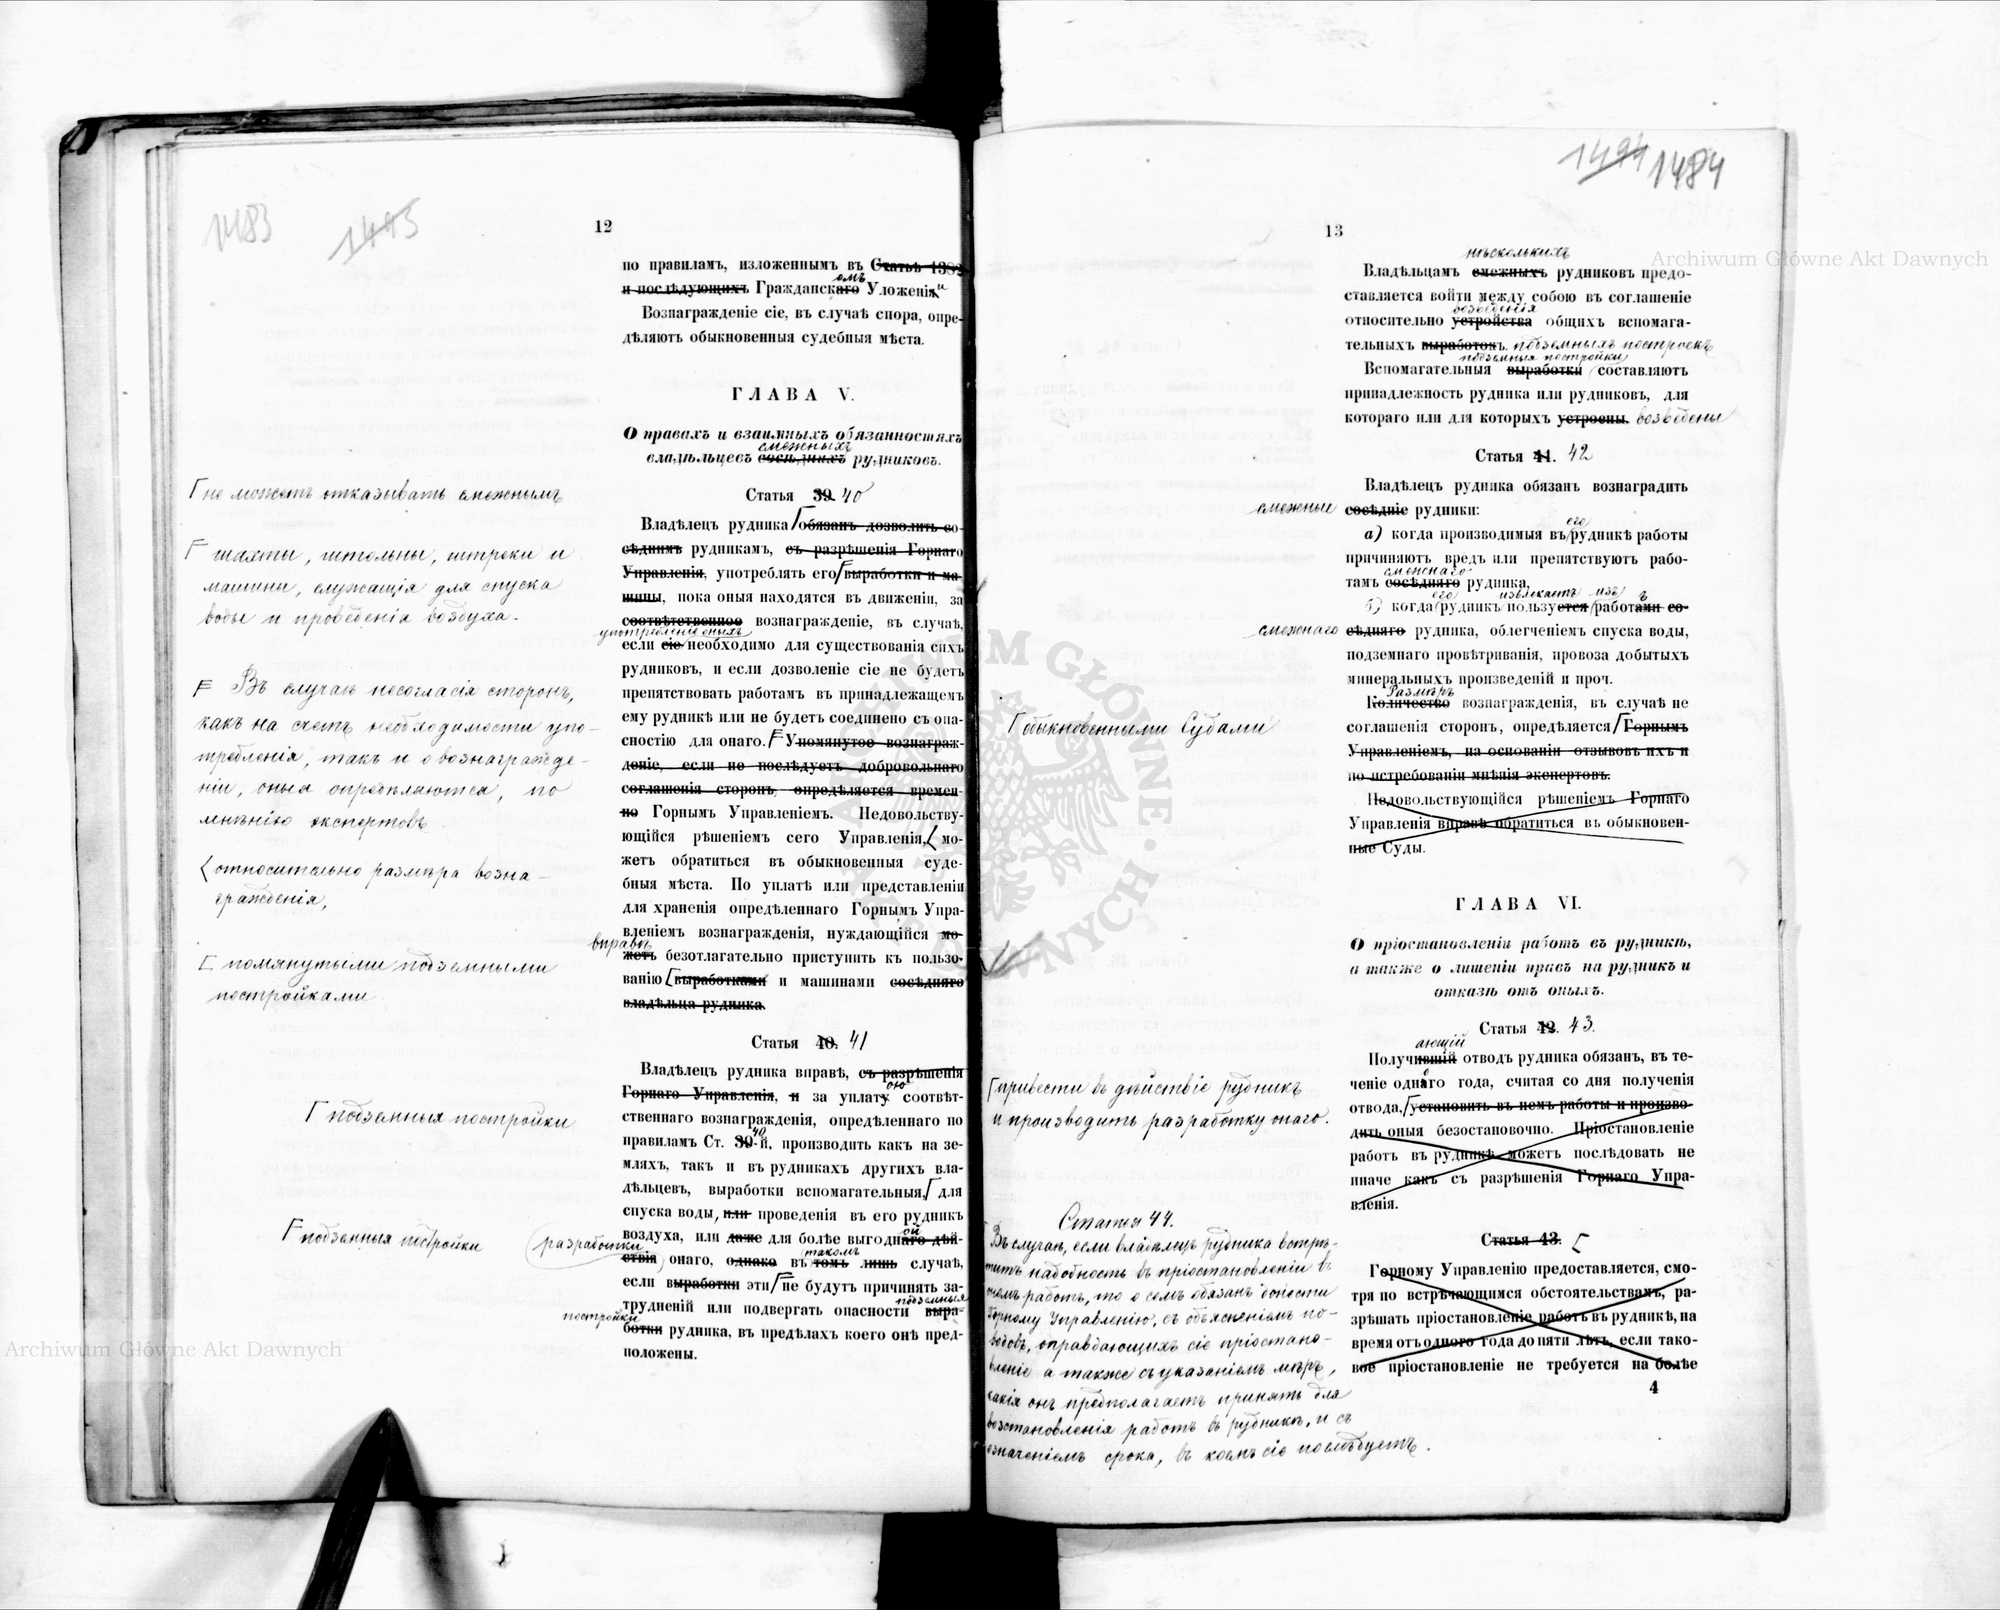 1483
1493
12
по правиламъ, изложеннымъ въ Статьѣ 1382
и послѣдующихъ Гражданскаго Уложенія
омъ
и
Вознагражденіе сіе, въ случаѣ спора, опре-
дѣляютъ обыкновенныя судебныя мѣста.
ГЛАВА V.
О правахъ и взаимныхъ обязанностяхъ
смежныхъ
владѣльцевъ сосѣднихъ рудниковъ.
Статья 39. 40
Владѣлецъ рудника обязанъ дозволить со-
сѣднимъ рудникамъ, съ разрѣшенія Горнаго
Управленія, употреблять его выработки и ма-
шины, пока оныя находятся въ движеніи, за
соотвѣтственное вознагражденіе, въ случаѣ,
употребленіе оныхъ
если сіе необходимо для существованія сихъ
рудниковъ, и если дозволеніе сіе не будетъ
препятствовать работамъ въ принадлежащемъ
ему рудникѣ или не будетъ соединено съ опа-
сностію для онаго. Упомянутое вознаграж-
деніе, если не послѣдуетъ добровольнаго
соглашенія сторонъ, опредѣляется времен-
но Горнымъ Управленіемъ. Недовольству-
ющійся рѣшеніемъ сего Управленія, мо-
жетъ обратиться въ обыкновенныя суде-
бныя мѣста. По уплатѣ или представленіи
для храненія опредѣленнаго Горнымъ Упра-
вленіемъ вознагражденія, нуждающійся мо-
вправѣ
жетъ безотлагательно приступить къ пользо-
ванію выработками и машинами сосѣдняго
владѣльца рудника.
Статья 40. 41
Владѣлецъ рудника вправѣ, съ разрѣшенія
Горнаго Управленія, и за уплату соотвѣт-
ою
ственнаго вознагражденія, опредѣленнаго по
40
правиламъ Ст. 39-й, производить какъ на зе-
мляхъ, такъ и въ рудникахъ другихъ вла-
дѣльцевъ, выработки вспомагательныя, для
спуска воды, или проведенія въ его рудникъ
воздуха, или даже для болѣе выгоднаго дѣй-
ой
разработки
такомъ
ствія онаго, однако въ томъ лишь случаѣ,
если выработки эти не будутъ причинять за-
трудненій или подвергать опасности выра-
подземныя
постройки
ботки рудника, въ предѣлахъ коего онѣ пред-
положены.
не можетъ отказывать смежнымъ
шахты, штольны, штреки и
машины, служащія для спуска
воды и проведенія воздуха.
Въ случаѣ несогласія сторонъ,
какъ на счетъ необходимости упо-
требленія, такъ и о вознагражде-
ніи, оныя опредѣляются, по
мнѣнію экспертовъ
относительно размѣра возна-
гражденія,
помянутыми подземными
постройками
подземныя постройки
подземныя постройки
1494 1484
13
нѣсколькихъ
Владѣльцамъ смежныхъ рудниковъ предо-
ставляется войти между собою въ соглашеніе
возведенія
относительно устройства общихъ вспомага-
тельныхъ выработокъ. подземныхъ построекъ
подземныя постройки
Вспомагательныя выработки составляютъ
принадлежность рудника или рудниковъ, для
котораго или для которыхъ устроены. возведены
Статья 41. 42
Владѣлецъ рудника обязанъ вознаградить
смежные
сосѣдніе рудники:
его
а) когда производимыя въ рудникѣ работы
причиняютъ вредъ или препятствуютъ рабо-
смежнаго
тамъ сосѣдняго рудника,
его извлекаетъ изъ ъ
б) когда рудникъ пользуется работами со-
смежнаго
сѣдняго рудника, облегченіемъ спуска воды,
подземнаго провѣтриванія, провоза добытыхъ
минеральныхъ произведеній и проч.
Размѣръ
Количество вознагражденія, въ случаѣ не
соглашенія сторонъ, опредѣляется Горнымъ
Управленіемъ, на основаніи отзывовъ ихъ и
по истребованіи мнѣнія экспертовъ.
обыкновенными Судами
Недовольствующійся рѣшеніемъ Горнаго
Управленія вправѣ обратиться въ обыкновен-
ные Суды.
ГЛАВА VI.
О пріостановленіи работъ въ рудникѣ,
а также о лишеніи правъ на рудникъ и
отказѣ отъ оныхъ.
Статья 42. 43.
ающій
Получившій отводъ рудника обязанъ, въ те-
ченіе однаго года, считая со дня полученія
отвода, установить въ немъ работы и произво-
дить оныя безостановочно. Пріостановленіе
работъ въ рудникѣ можетъ послѣдовать не
иначе какъ съ разрѣшенія Горнаго Упра-
вленія.
привести въ дѣйствіе рудникъ
и производить разработку онаго.
Статья 43.
Горному Управленію предоставляется, смо-
тря по встрѣчающимся обстоятельствамъ, ра-
зрѣшать пріостановленіе работъ въ рудникѣ, на
время отъ одного года до пяти лѣтъ, если тако-
вое пріостановленіе не требуется на болѣе
4
Статья 44.
Въ случаѣ, если владѣлецъ рудника встрѣ-
титъ надобность въ пріостановленіи въ
немъ работъ, то о семъ обязанъ донести
Горному Управленію, съ объясненіемъ по-
водовъ, оправдывающихъ сіе пріостано-
вленіе а также съ указаніемъ мѣръ,
какія онъ предполагаетъ принять для
возстановленія работъ въ рудникѣ, и съ
означеніемъ срока, въ коемъ сіе послѣдуетъ.
Archiwum Główne Akt Dawnych
Archiwum Główne Akt Dawnych
ARCHIWUM GŁÓWNE AKT DAWNYCH